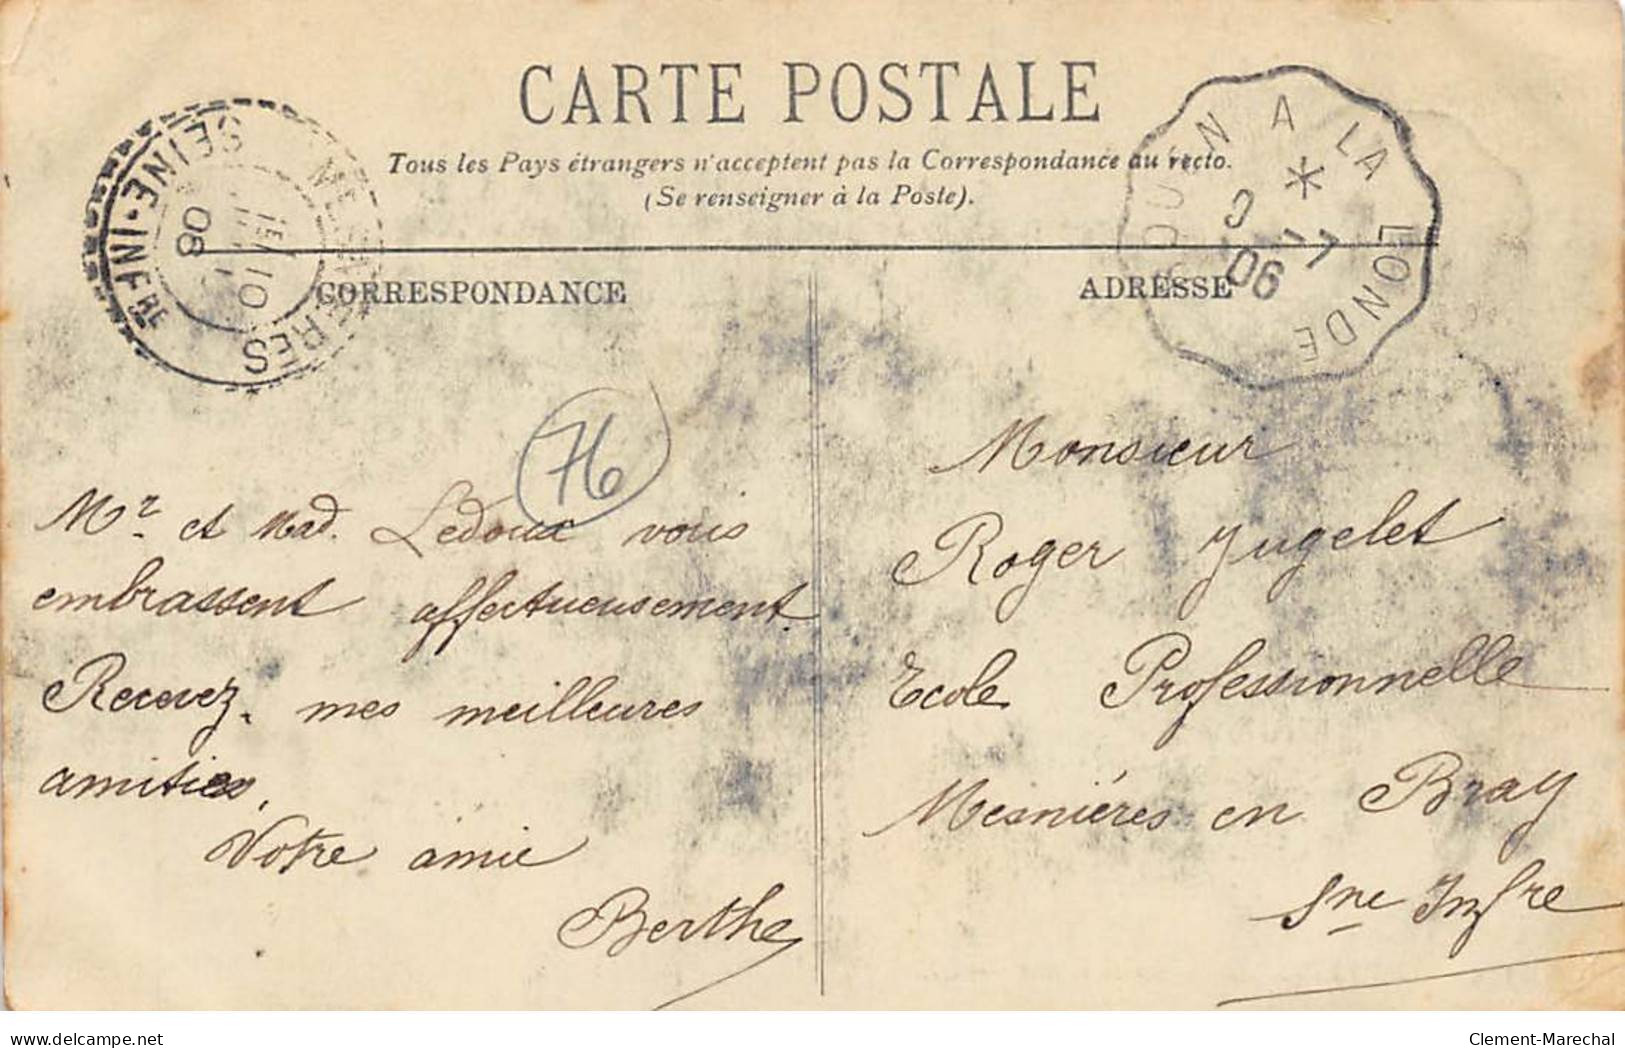 CARTE POSTALE
Tous les Pays étrangers n'acceptent pas la Correspondance au recto.
(Se renseigner à la Poste).
SEINE-INFRE
10
06
A LA LONDE
06
CORRESPONDANCE
ADRESSE
76
Mr et Mad. Ledoux vous
embrassent affectueusement.
Recevez mes meilleures
amitiés,
Votre amie
Berthe
Monsieur
Roger Jugelet
Ecole Professionnelle
Mesnières en Bray
Sne Infre
Clement-Marechal